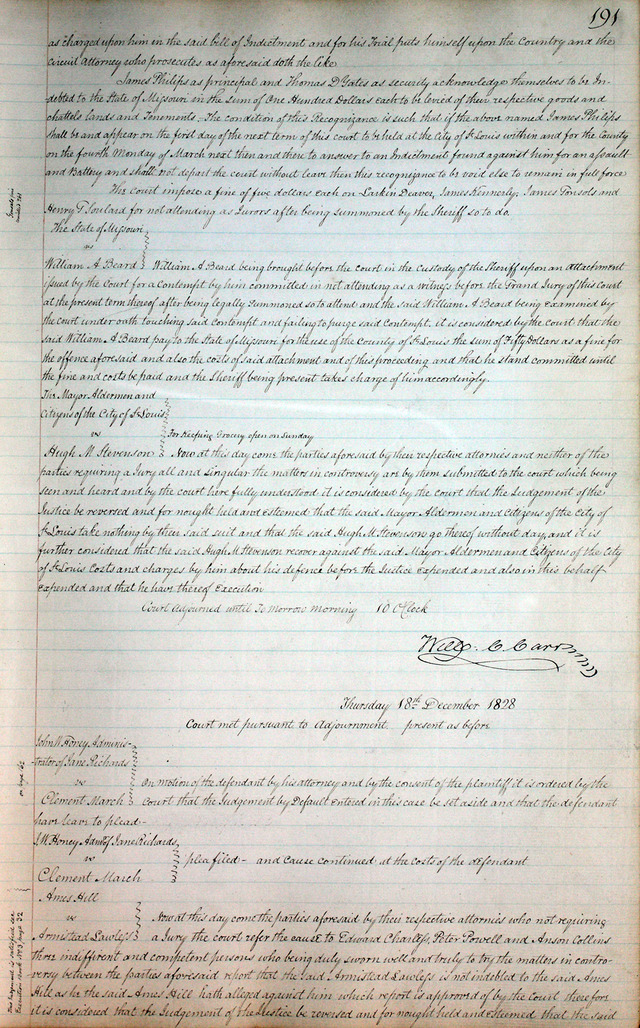 191
as charged upon him in the said bill of Indictment and for his Trial puts himself upon the Country and the
Circuit Attorney who prosecutes as aforesaid doth the like
James Philips as principal and Thomas D Yates as security acknowledge themselves to be In-
debted to the State of Missouri in the Sum of One Hundred Dollars each to be levied of their respective goods and
chattels lands and Tenements. The condition of this Recognizance is such that if the above named James Philips
shall be and appear on the first day of the next term of this court to be held at the City of St Louis within and for the County
on the fourth Monday of March next then and there to answer to an Indictment found against him for an assault
and Battery and shall not depart the court without leave then this recognizance to be void else to remain in full force
The court impose a fine of five dollars each on Larkin Deaver, James Kennerly, James Ponsols and
Henry T Soulard for not attending as Jurors after being summoned by the Sheriff so to do.
The State of Missouri
vs
William A Beard William A Beard being brought before the court in the Custody of the Sheriff upon an attachment
issued by the Court for a Contempt by him committed in not attending as a witness before the Grand Jury of this Court
at the present term thereof after being legally summoned so to attend and the said William A Beard being examined by
the court under oath touching said Contempt and failing to purge said Contempt. it is considered by the Court that the
said William A Beard pay to the State of Missouri for the use of the County of St Louis the sum of Fifty Dollars as a fine for
the offence aforesaid and also the costs of said attachment and of this proceeding and that he stand committed until
the fine and costs be paid and the Sheriff being present takes charge of him accordingly.
The Mayor Aldermen and
Citizens of the City of St Louis
vs For Keeping Grocery open on Sunday
Hugh M Stevenson Now at this day come the parties aforesaid by their respective attornies and neither of the
parties requiring a Jury all and singular the matters in controversy are by them submitted to the court which being
seen and heard and by the court here fully understood it is considered by the court that the Judgement of the
Justice be reversed and for nought held and esteemed that the said Mayor Aldermen and Citizens of the City of
St Louis take nothing by their said suit and that the said Hugh M Stevenson go thereof without day, and it is
further considered that the said Hugh M Stevenson recover against the said Mayor Aldermen and Citizens of the City
of St Louis Costs and charges by him about his defence before the Justice Expended and also in this behalf
Expended and that he have thereof Execution
Court Adjourned until To Morrow Morning 10 O Clock
Will. C. Carr
Thursday 18th December 1828
Court met pursuant to Adjournment present as before
John W Honey Adminis-
trator of Jane Richards
vs On motion of the defendant by his attorney and by the consent of the plaintiff it is ordered by the
Clement March Court that the Judgement by Default Entered in this case be set aside and that the defendant
have leave to plead-
J W Honey Adm of Jane Richards
vs plea filed - and cause continued at the costs of the defendant
Clement March
Ames Hill
vs Now at this day come the parties aforesaid by their respective attornies who not requiring
Armistead Lawless a Jury the court refer the cause to Edward Charless, Peter Powell and Anson Collins
three indifferent and competent persons who being duly sworn well and truly to try the matters in contro-
versy between the parties aforesaid report that the said Armistead Lawless is not indebted to the said Ames
Hill as he the said Ames Hill hath alleged against him which report is approved of by the Court therefore
it is considered that the Judgement of the Justice be reversed and for nought held and esteemed that the said